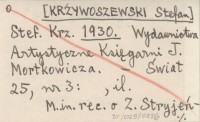 [KRZYWOSZEWSKI Stefan]
Stef. Krz. 1930. Wydawnictwa
Artystyczne Księgarni J.
Mortkowicza. — Świat
25, nr 3: , il.
M.in. rec. o Z. Stryjeń-